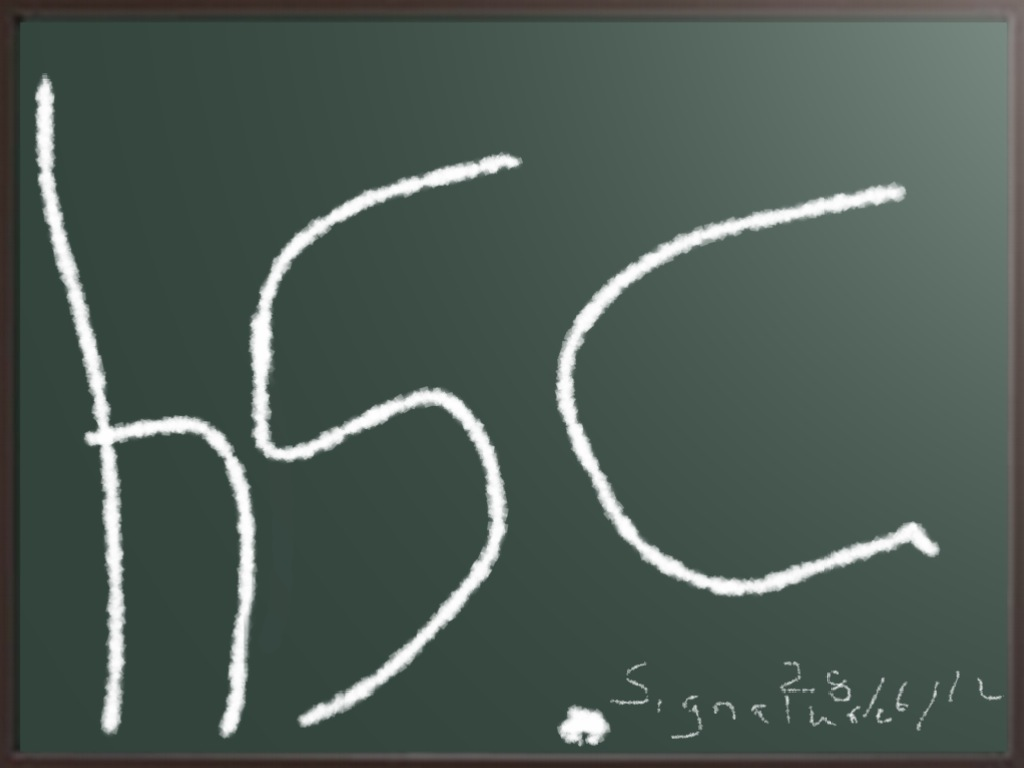 hsc
. Signature 28/6/12